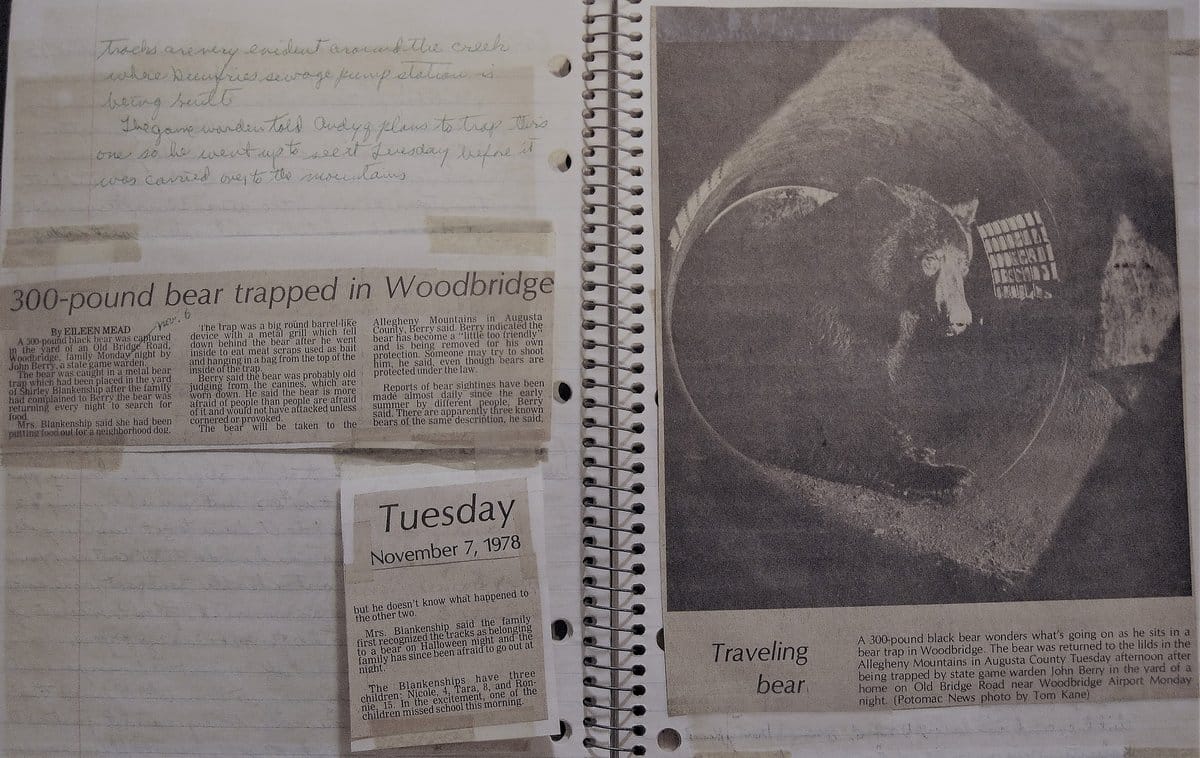 tracks are very evident around the creek
where Dumfries sewage pump station is
being built
The game warden told Andy plans to trap this
one so he went up to see it Tuesday before it
was carried over to the mountains
300-pound bear trapped in Woodbridge
Nov. 6
By EILEEN MEAD
A 300-pound black bear was captured
in the yard of an Old Bridge Road,
Woodbridge, family Monday night by
John Berry, a state game warden.
The bear was caught in a metal bear
trap which had been placed in the yard
of Shirley Blankenship after the family
had complained to Berry the bear was
returning every night to search for
food.
Mrs. Blankenship said she had been
putting food out for a neighborhood dog.
The trap was a big round barrel-like
device with a metal grill which fell
down behind the bear after he went
inside to eat meat scraps used as bait
and hanging in a bag from the top of the
inside of the trap.
Berry said the bear was probably old
judging from the canines, which are
worn down. He said the bear is more
afraid of people than people are afraid
of it and would not have attacked unless
cornered or provoked.
The bear will be taken to the
Allegheny Mountains in Augusta
County, Berry said. Berry indicated the
bear has become a "little too friendly"
and is being removed for his own
protection. Someone may try to shoot
him, he said, even though bears are
protected under the law.
Reports of bear sightings have been
made almost daily since the early
summer by different people, Berry
said. There are apparently three known
bears of the same description, he said,
Tuesday
November 7, 1978
but he doesn't know what happened to
the other two.
Mrs. Blankenship said the family
first recognized the tracks as belonging
to a bear on Halloween night and the
family has since been afraid to go out at
night.
The Blankenships have three
children; Nicole, 4, Tara, 8, and Ron-
nie, 15. In the excitement, one of the
children missed school this morning.
Traveling
bear
A 300-pound black bear wonders what's going on as he sits in a
bear trap in Woodbridge. The bear was returned to the lilds in the
Allegheny Mountains in Augusta County Tuesday afternoon after
being trapped by state game warden John Berry in the yard of a
home on Old Bridge Road near Woodbridge Airport Monday
night. (Potomac News photo by Tom Kane)